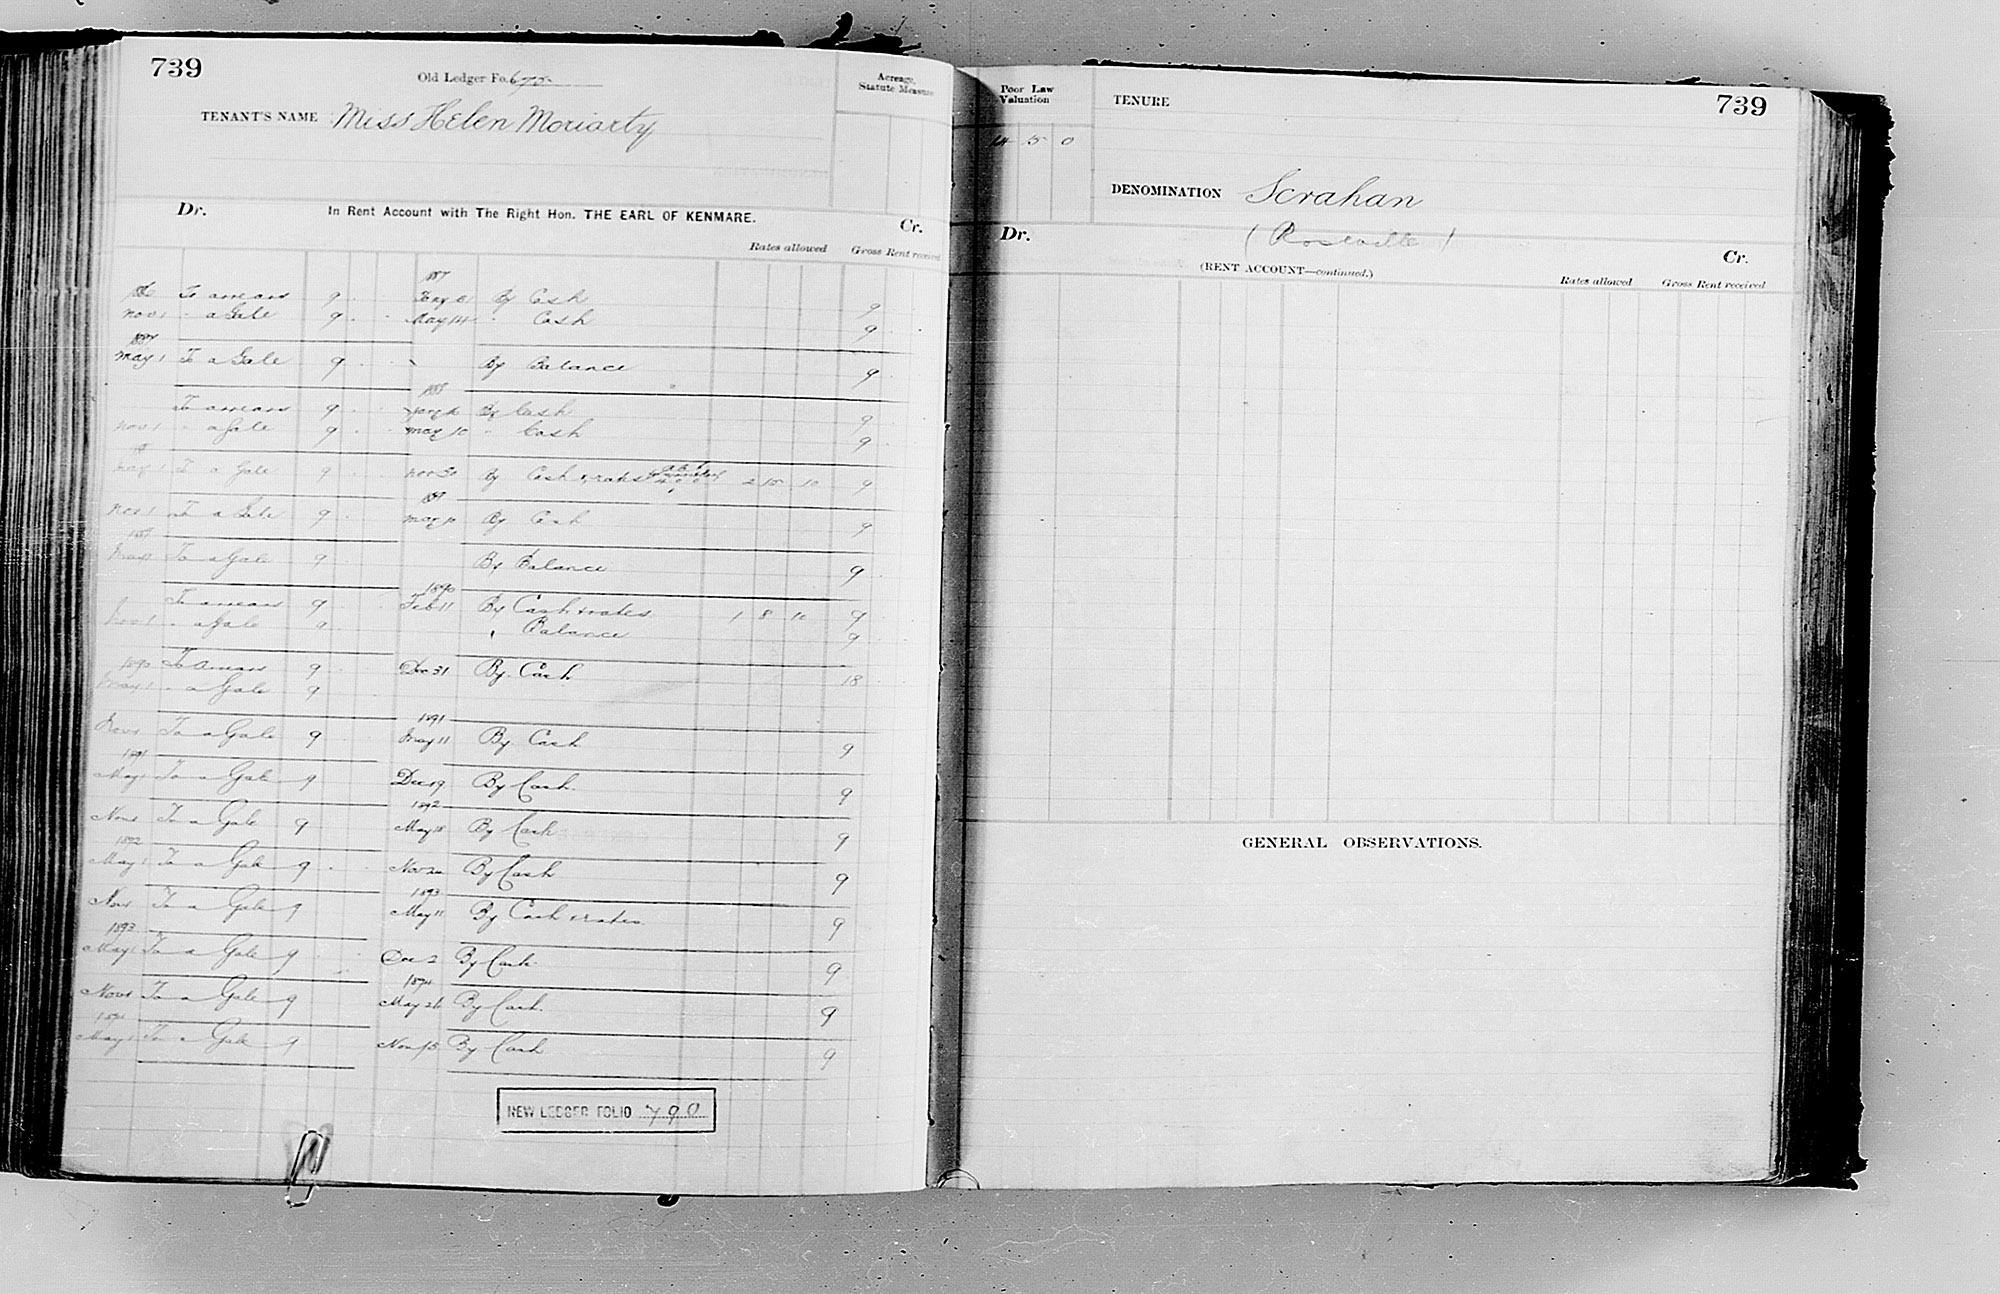 739
Old Ledger Fo. 675
Acreage, Statute Measure
TENANT'S NAME Miss Helen Moriarty
Dr. In Rent Account with The Right Hon. THE EARL OF KENMARE. Cr.
Rates allowed Gross Rent received
1887
To arrears 9 By Cash 9
Nov 1 " a Gale 9 May 14 " Cash 9
1887
May 1 To a Gale 9 By Balance 9
1888
To arrears 9 By Cash 9
Nov 1 " a Gale 9 May 10 " Cash 9
May 1 To a Gale 9 Nov 30 By Cash & rates 2 15 10 9
1889
Nov 1 To a Gale 9 May 10 By Cash 9
1889
May 1 To a Gale 9 By Balance 9
1890
To arrears 9 Feb 11 By Cash & rates 1 8 10 9
Nov 1 " a Gale 9 " Balance 9
1890 To arrears 9 Dec 31 By Cash 18
May 1 " a Gale 9
1891
Nov 1 To a Gale 9 May 11 By Cash 9
1891
May 1 To a Gale 9 Dec 19 By Cash 9
1892
Nov 1 To a Gale 9 May 18 By Cash 9
1892
May 1 To a Gale 9 Nov 22 By Cash 9
1893
Nov 1 To a Gale 9 May 11 By Cash & rates 9
1893
May 1 To a Gale 9 Dec 2 By Cash 9
1894
Nov 1 To a Gale 9 May 26 By Cash 9
1894
May 1 To a Gale 9 Nov 15 By Cash 9
NEW LEDGER FOLIO 790
Poor Law Valuation
14 15 0
TENURE
739
DENOMINATION Scrahan
(Roseville)
Dr. Cr.
(RENT ACCOUNT—continued.)
Rates allowed Gross Rent received
GENERAL OBSERVATIONS.